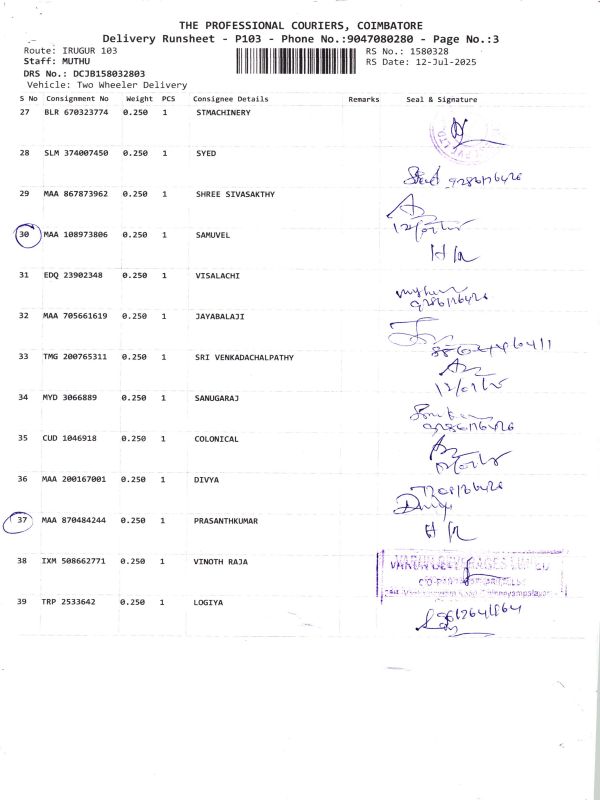 THE PROFESSIONAL COURIERS, COIMBATORE
Delivery Runsheet - P103 - Phone No.:9047080280 - Page No.:3
Route: IRUGUR 103 RS No.: 1580328
Staff: MUTHU RS Date: 12-Jul-2025
DRS No.: DCJB158032803
Vehicle: Two Wheeler Delivery
S No Consignment No Weight PCS Consignee Details Remarks Seal & Signature
27 BLR 670323774 0.250 1 STMACHINERY
28 SLM 374007450 0.250 1 SYED
29 MAA 867873962 0.250 1 SHREE SIVASAKTHY
30 MAA 108973806 0.250 1 SAMUVEL
31 EDQ 23902348 0.250 1 VISALACHI
32 MAA 705661619 0.250 1 JAYABALAJI
33 TMG 200765311 0.250 1 SRI VENKADACHALPATHY
34 MYD 3066889 0.250 1 SANUGARAJ
35 CUD 1046918 0.250 1 COLONICAL
36 MAA 200167001 0.250 1 DIVYA
37 MAA 870484244 0.250 1 PRASANTHKUMAR
38 IXM 508662771 0.250 1 VINOTH RAJA
39 TRP 2533642 0.250 1 LOGIYA